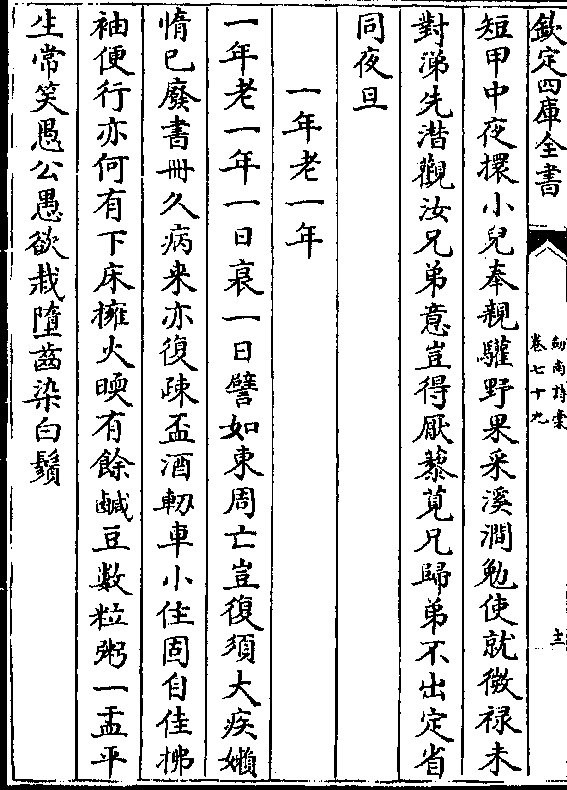 欽定四庫全書
劒南詩槀
卷七十九
主
短甲中夜擐小兒奉親驩野果采溪澗勉使就微禄未
對涕先潸觀汝兄弟意豈得厭藜莧兄歸弟不出定省
同夜旦
一年老一年
一年老一年一日衰一日譬如東周亡豈復須大疾嬾
惰已廢書冊久病来亦復疎盃酒軔車小住固自佳拂
袖便行亦何有下床擁火暎有餘鹹豆數粒粥一盂平
生常笑愚公愚欲栽墮齒染白鬚